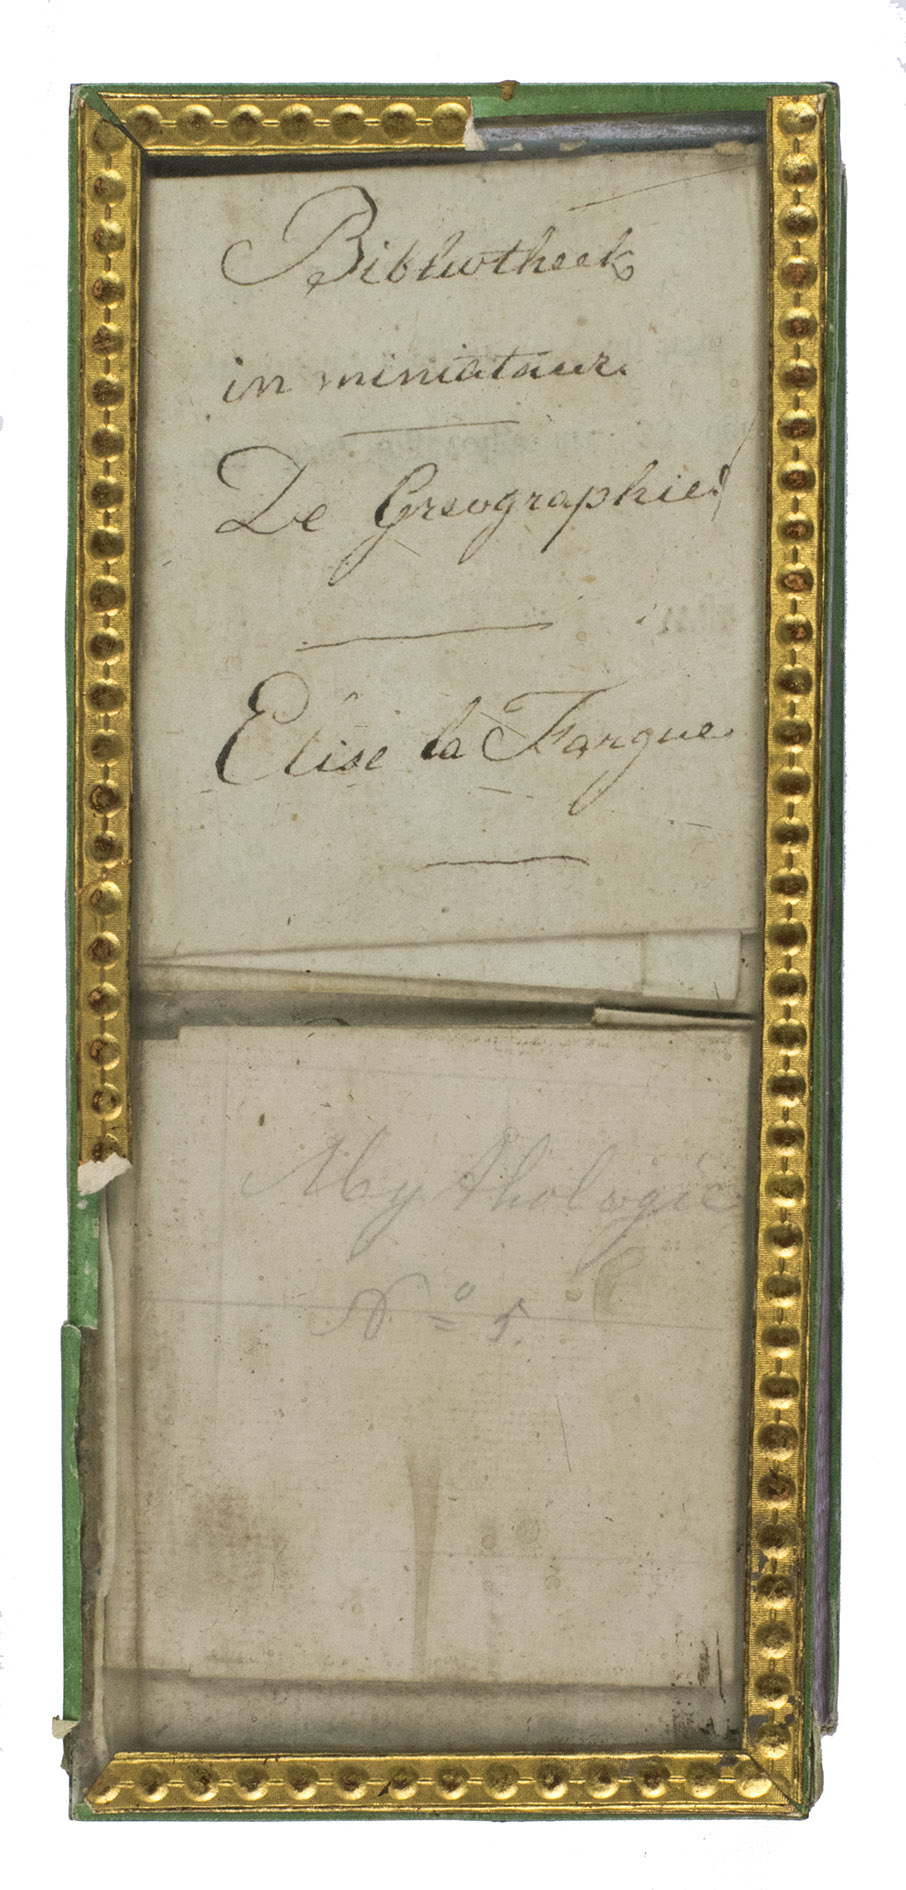 Bibliotheek
in miniatuur.
De Greographie.
Elise la Fargue.
Mythologie
No 5.